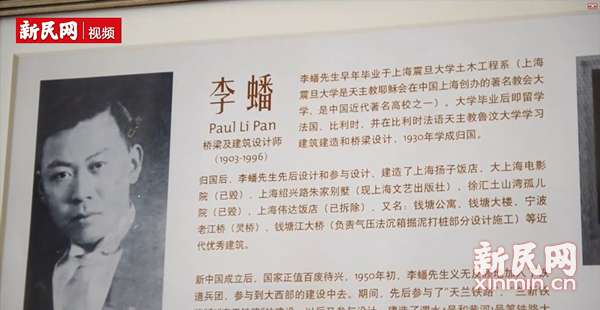 新民网 视频
李蟠
Paul Li Pan
桥梁及建筑设计师
(1903-1996)
李蟠先生早年毕业于上海震旦大学土木工程系（上海
震旦大学是天主教耶稣会在中国上海创办的著名教会大
学，是中国近代著名高校之一）。大学毕业后即留学
法国、比利时，并在比利时法语天主教鲁汶大学学习
建筑建造和桥梁设计，1930年学成归国。
归国后，李蟠先生先后设计和参与设计、建造了上海扬子饭店、大上海电影
院（已毁）、上海绍兴路朱家别墅（现上海文艺出版社）、徐汇土山湾孤儿
院（已毁）、上海伟达饭店（已拆除）、又名：钱塘公寓、钱塘大楼、宁波
老江桥（灵桥）、钱塘江大桥（负责气压法沉箱掘泥打桩部分设计施工）等近
代优秀建筑。
新中国成立后，国家正值百废待兴，1950年初，李蟠先生义无反顾地加入了铁
道兵团，参与到大西部的建设中去。期间，先后参与了“天兰铁路”、“兰新铁
新民网
xinmin.cn